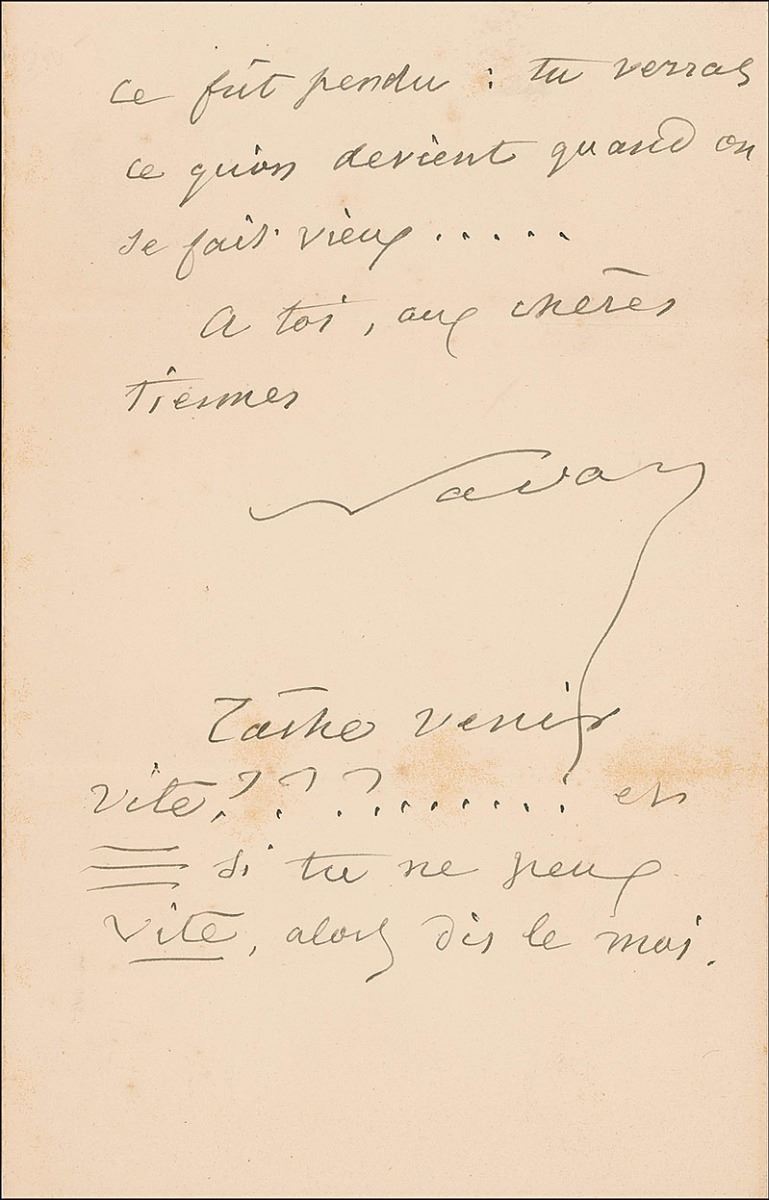 ce fût pendu : tu verras
ce qu'on devient quand on
se fait vieux . . . . .
A toi, aux chères
tiennes
Nadar
Tâche venir
vite ? ? ? . . . . . . . . et
si tu ne peux
vite, alors dis le moi.